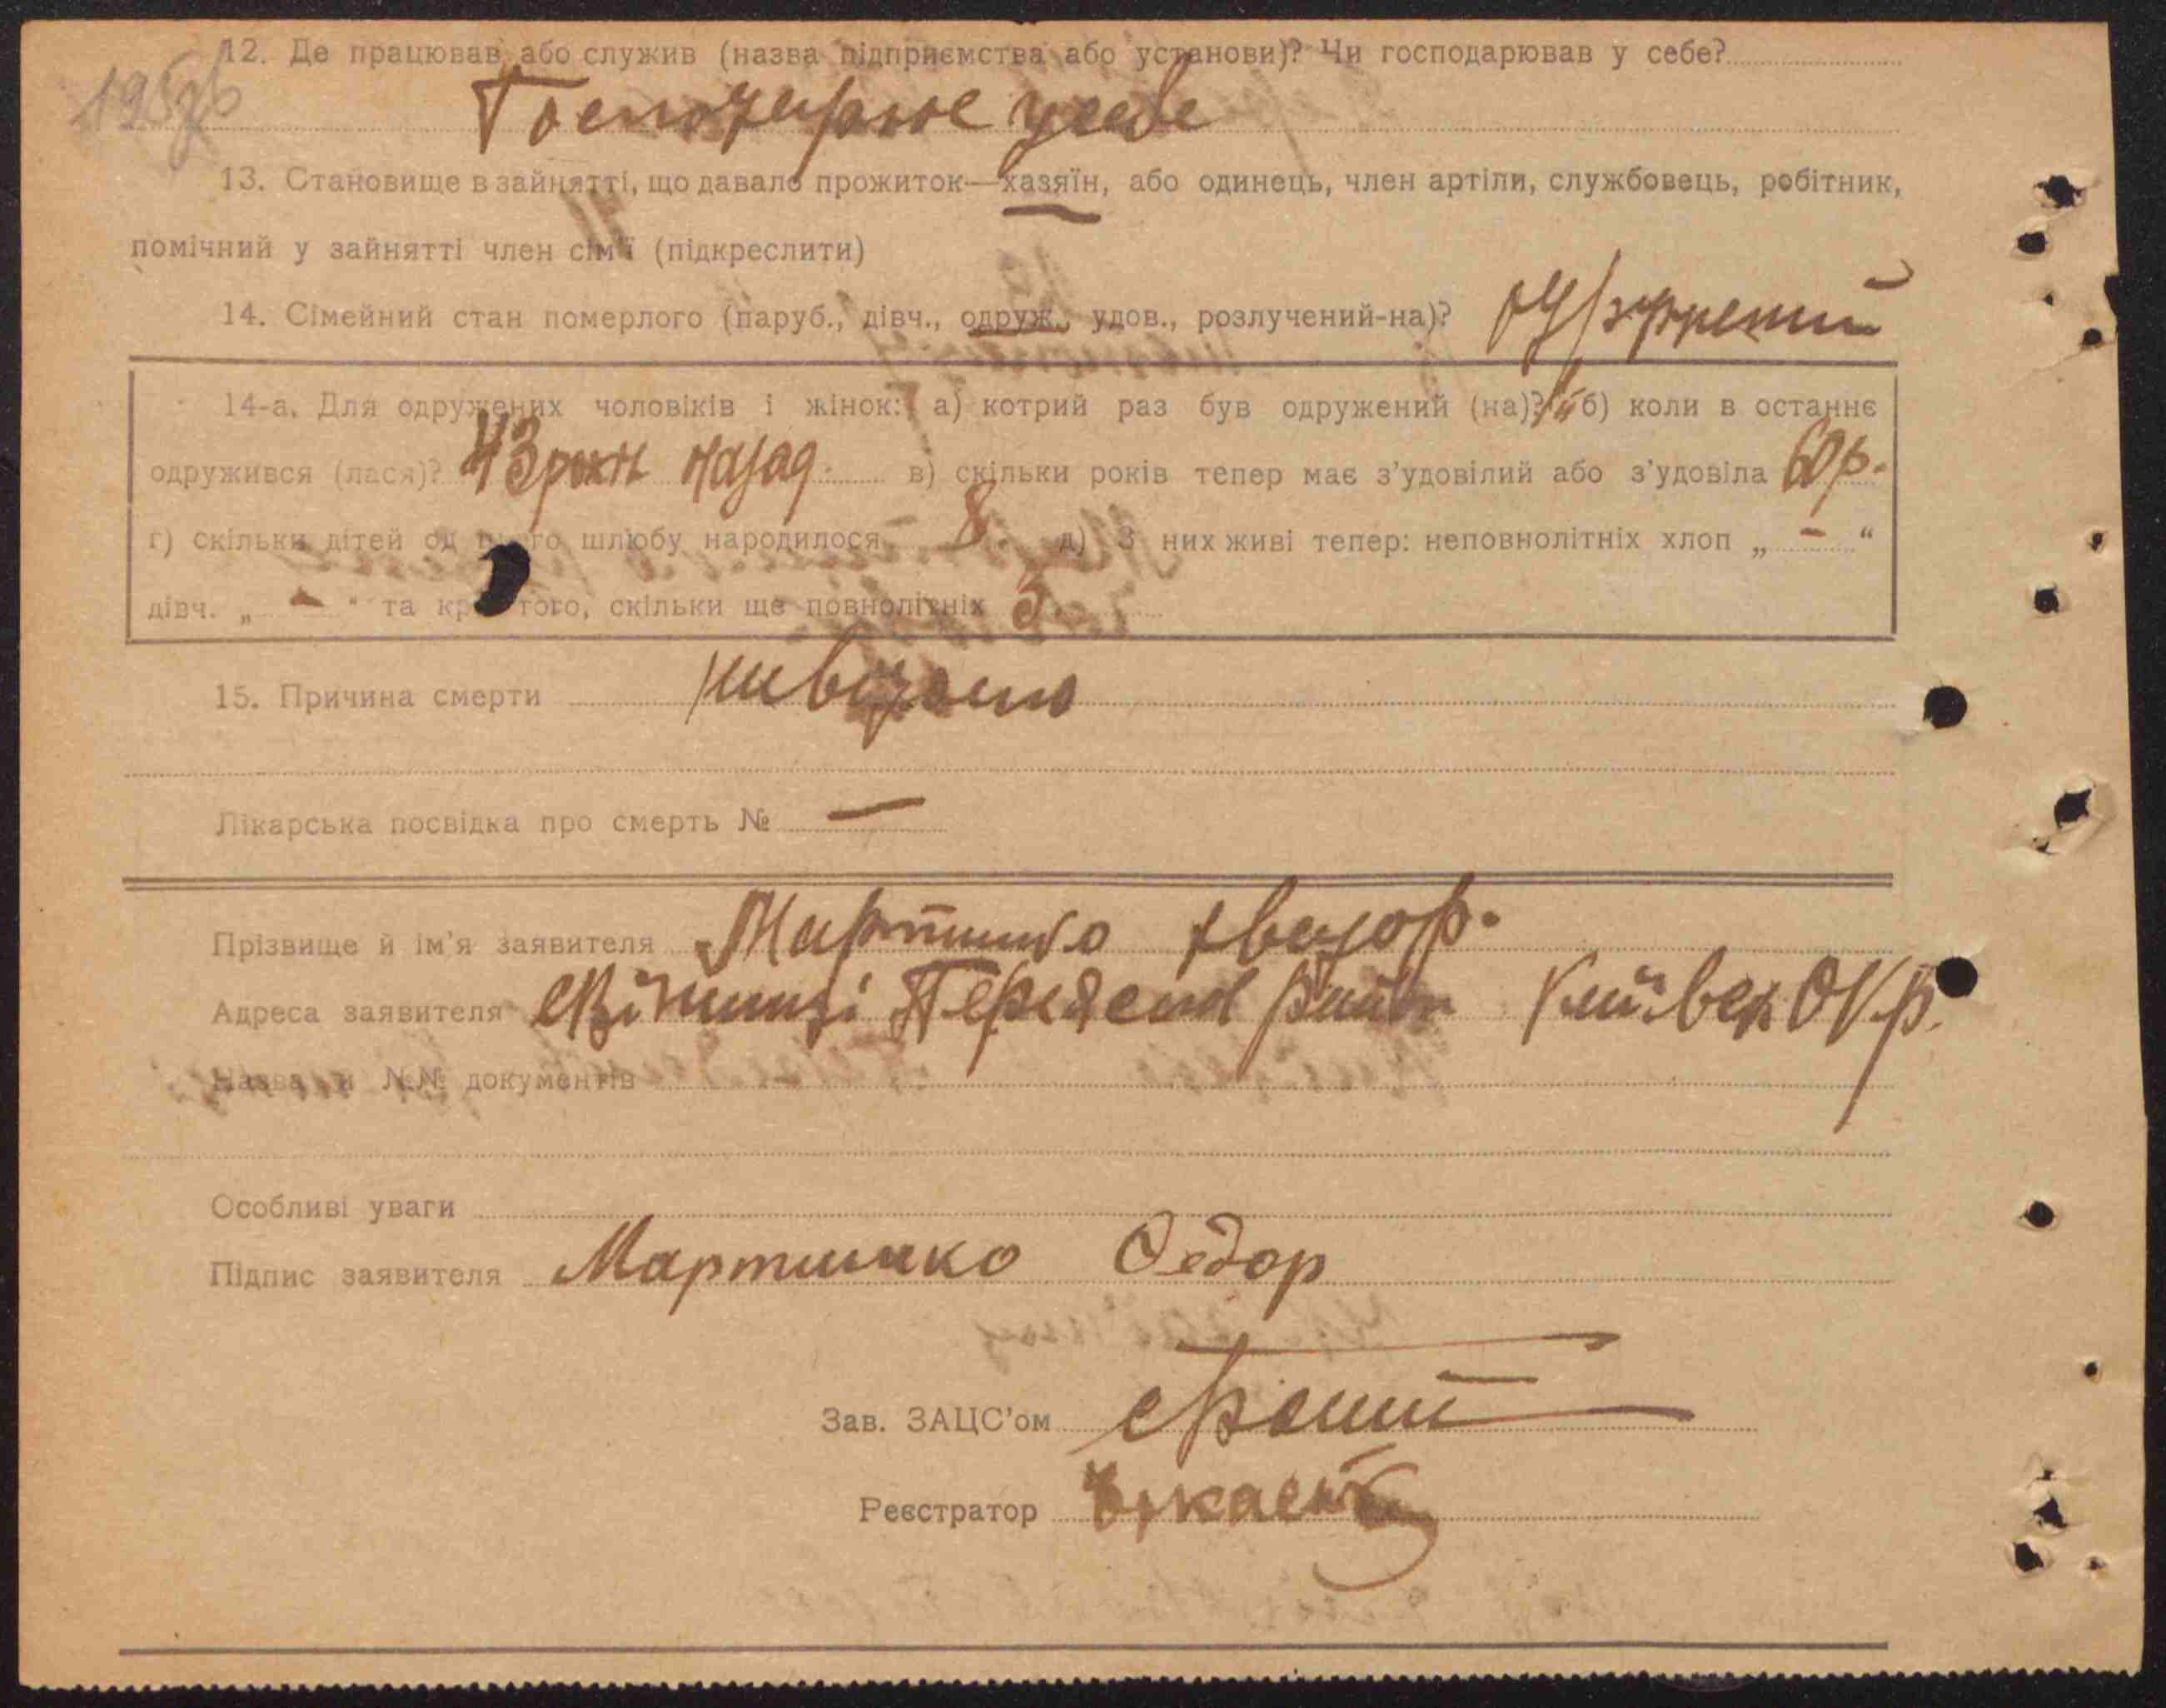 12. Де працював або служив (назва підприємства або установи)? Чи господарював у себе?
усебе
13. Становище в зайнятті, що давало прожиток—хазяїн, або одинець, член артіли, службовець, робітник,
помічний у зайнятті член сім'ї (підкреслити)
14. Сімейний стан померлого (паруб., дівч., одруж., удов., розлучений-на)?
14-а. Для одружених чоловіків і жінок: а) котрий раз був одружений (на)? б) коли в останнє
одружився (лася)? 43 роки назад в) скільки років тепер має з'удовілий або з'удовіла 60 р.
г) скільки дітей од шлюбу народилося 8 д) З них живі тепер: неповнолітніх хлоп „ – “
дівч. „ – “ та того, скільки ще повнолітніх
15. Причина смерти невідомо
Лікарська посвідка про смерть № —
Прізвище й ім'я заявителя Мартинко Хведор.
Адреса заявителя район Київськ Окр.
Назва й №№ документів
Особливі уваги
Підпис заявителя Мартинко Федор
Зав. ЗАЦС'ом
Реєстратор